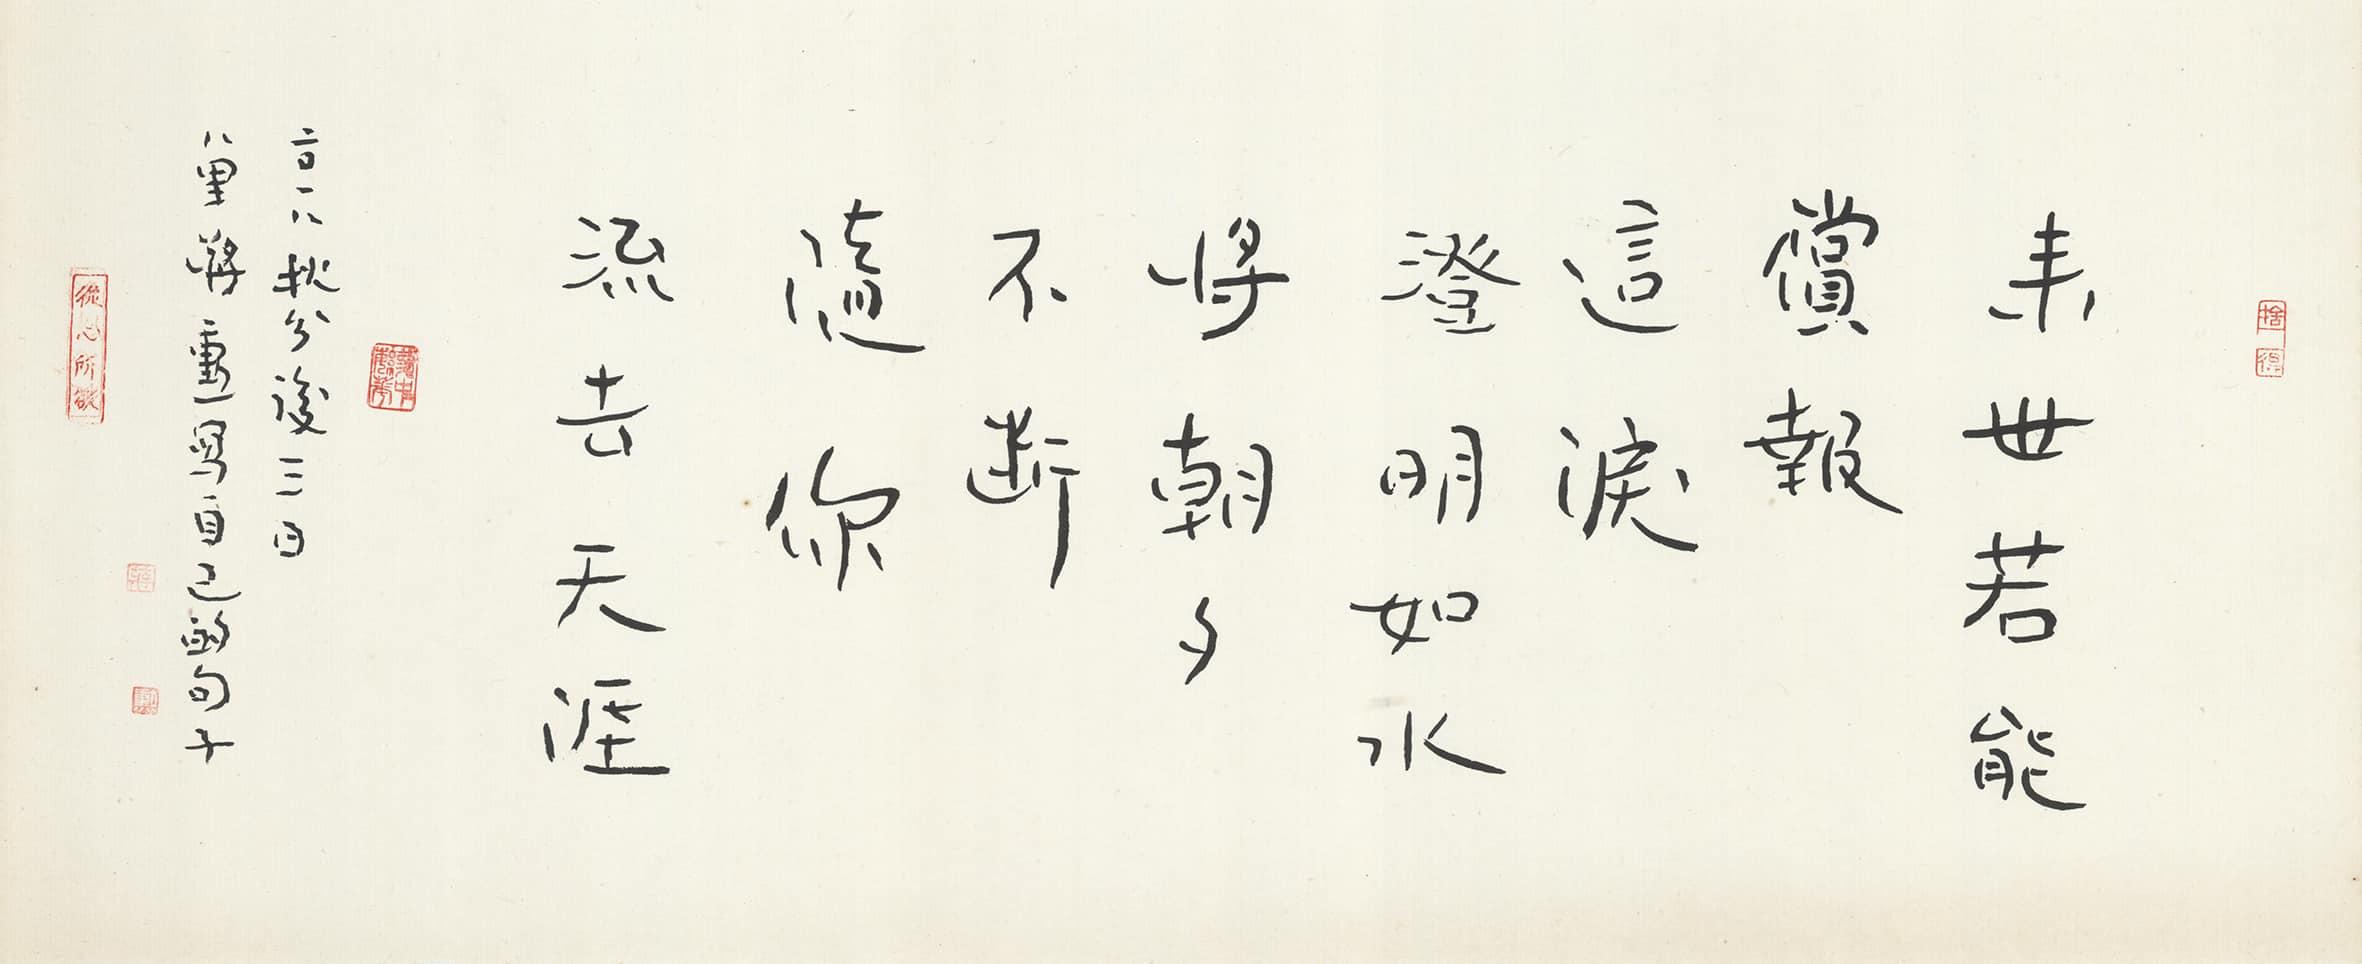 捨得
來世若能
償報
這淚
澄明如水
將朝夕
不斷
隨你
流去天涯
二〇一八秋分後三日
八里蔣勳寫自己的句子
從心所欲
蔣
勳